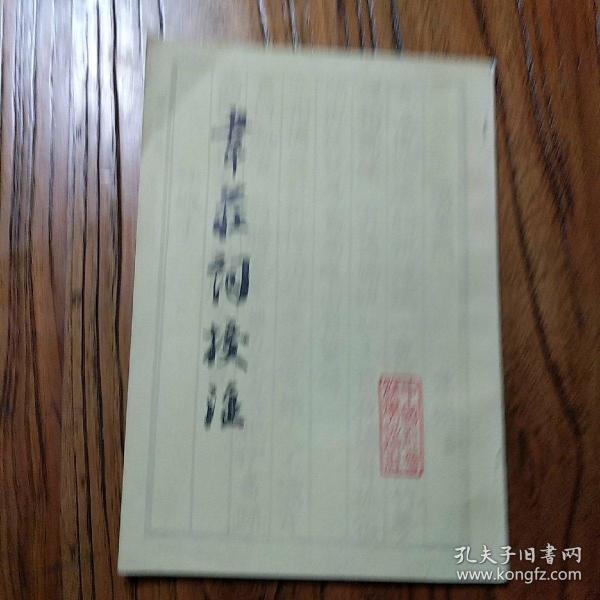 韦庄词校注
孔夫子旧書网
www.kongfz.com